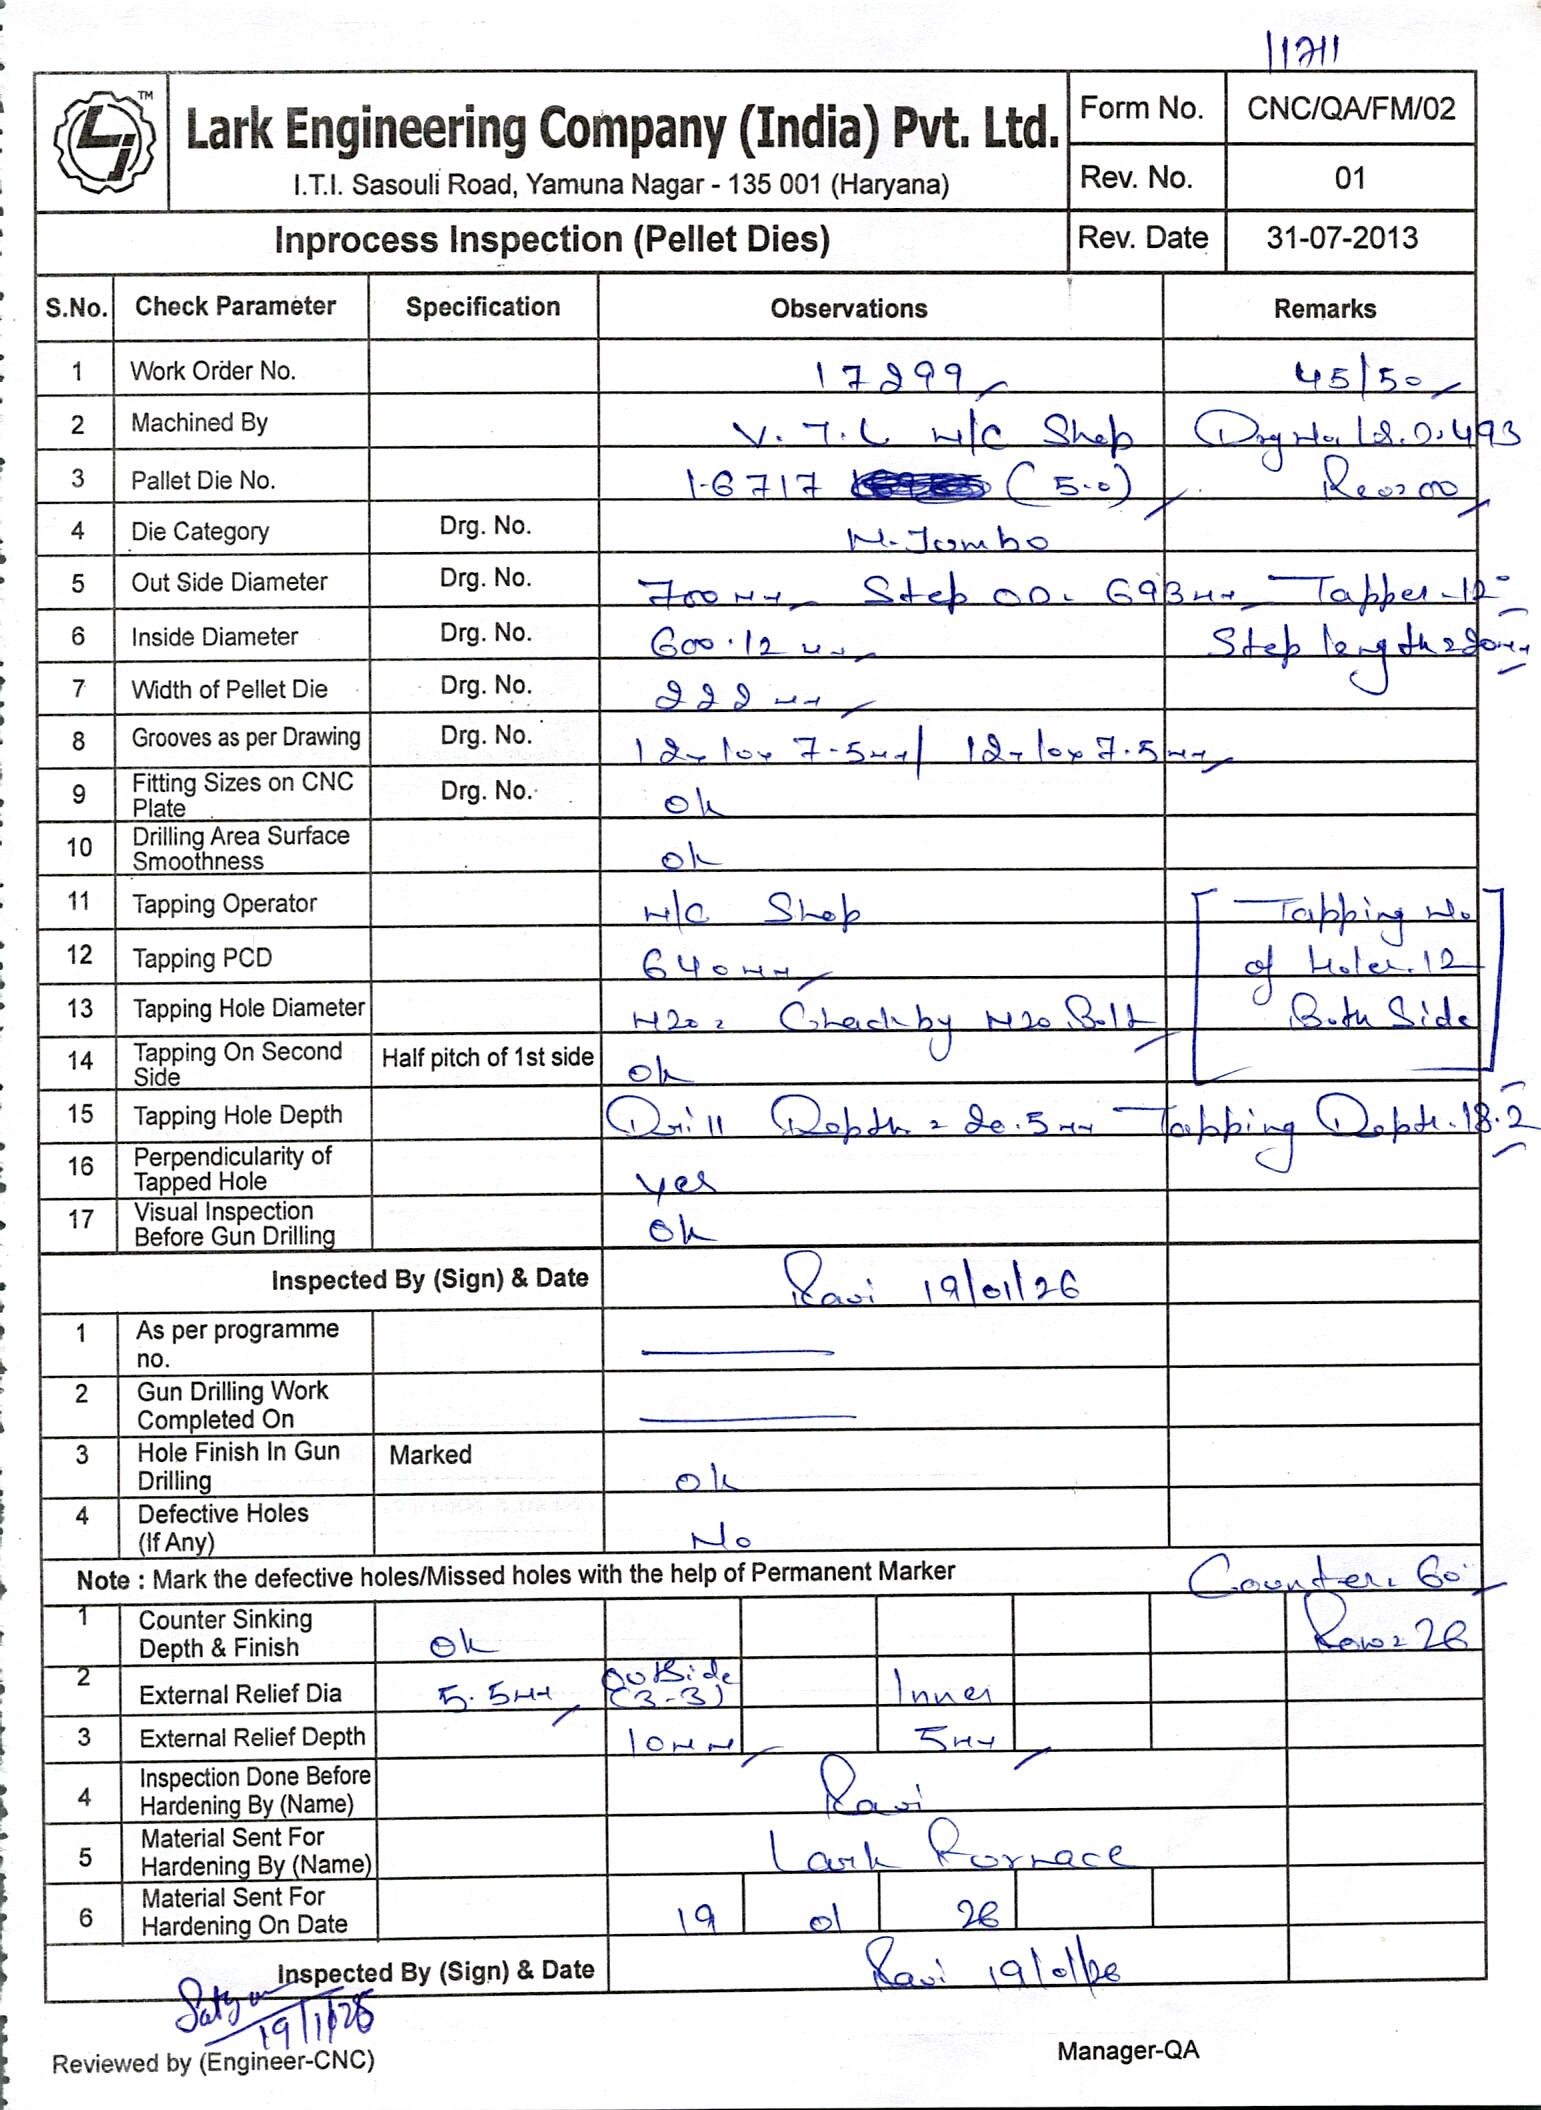 11711
TM
Lark Engineering Company (India) Pvt. Ltd.
I.T.I. Sasouli Road, Yamuna Nagar - 135 001 (Haryana)
Form No. CNC/QA/FM/02
Rev. No. 01
Inprocess Inspection (Pellet Dies) Rev. Date 31-07-2013
S.No. Check Parameter Specification Observations Remarks
1 Work Order No. 17299 45/50
2 Machined By V.T.L M/C Shop Drg No. LS.D.493
3 Pallet Die No. 1-6717 (5.0) Rev=00
4 Die Category Drg. No. M-Jumbo
5 Out Side Diameter Drg. No. 700mm Step OD. 693mm Tapper-12°
6 Inside Diameter Drg. No. 600.12mm Step length=20mm
7 Width of Pellet Die Drg. No. 222mm
8 Grooves as per Drawing Drg. No. 12x10x7.5mm/ 12x10x7.5mm
9 Fitting Sizes on CNC Plate Drg. No. ok
10 Drilling Area Surface Smoothness ok
11 Tapping Operator M/C Shop Tapping No
12 Tapping PCD 640mm of Holes.12
13 Tapping Hole Diameter M20= Check by M20 Bolt Both Side
14 Tapping On Second Side Half pitch of 1st side ok
15 Tapping Hole Depth Drill Depth=20.5mm Tapping Depth.18.2
16 Perpendicularity of Tapped Hole yes
17 Visual Inspection Before Gun Drilling ok
Inspected By (Sign) & Date Ravi 19/01/26
1 As per programme no.
2 Gun Drilling Work Completed On
3 Hole Finish In Gun Drilling Marked ok
4 Defective Holes (If Any) No
Note : Mark the defective holes/Missed holes with the help of Permanent Marker Counter. 60°
1 Counter Sinking Depth & Finish ok Row=26
2 External Relief Dia 5.5mm Outside (3-3) Inner
3 External Relief Depth 10mm 5mm
4 Inspection Done Before Hardening By (Name) Ravi
5 Material Sent For Hardening By (Name) Lark Furnace
6 Material Sent For Hardening On Date 19 01 26
Inspected By (Sign) & Date Ravi 19/01/26
Satyam
19/1/26
Reviewed by (Engineer-CNC) Manager-QA